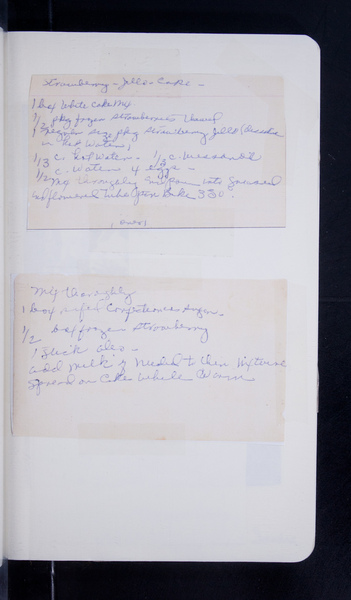 Strawberry - Jello Cake -
1 box White Cake Mix
1/2 pkg frozen Strawberries thawed
1 regular size pkg Strawberry Jello (dissolve
in hot Water)
1/3 c. hot Water. 1/3 c. Wesson oil
1/2 c. Water 4 eggs -
Mix thoroughly and pour into greased
and floured tube pan Bake 330.
(over)
Mix thoroughly
1 box Confectioners Sugar.
1/2 box frozen Strawberry
1 Stick oleo -
add milk if Needed to thin Mixture
Spread on Cake while Warm